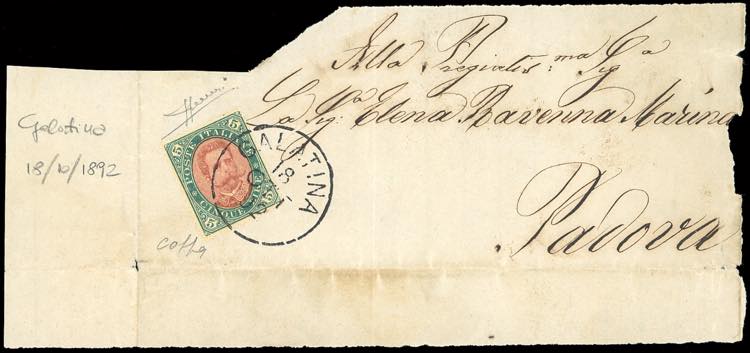 Alla Pregiatis:ma Siga
La Siga: Elena Ravenna Marina
Padova
Galatina
18/10/1892
5 5
POSTE ITALIANE
CINQUE LIRE
5 5
GALATINA
18
92